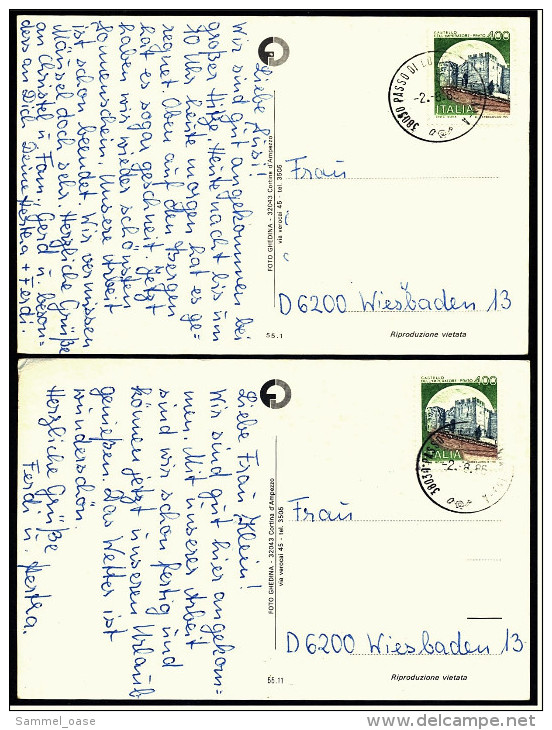 Liebe Lüsi!
Wir sind gut angekommen bei
großer Hitze, Heute nacht bis um
10 Uhr heute morgen hat es ge=
regnet. Oben auf den Bergen
hat es sogar geschneit. Jetzt
haben wir wieder schönsten
Sonnenschein. Unsere Arbeit
ist schon beendet. Wir vermissen
Mänsel doch sehr. Herzliche Grüße
an Christel u. Fam., Gerd u. beson=
ders an Dich Deine Hertha + Ferdi.
FOTO GHEDINA - 32043 Cortina d'Ampezzo
via verocai 45 - tel. 3506
CASTELLO
DELL'IMPERATORE - PRATO 400
ITALIA
38030 PASSO DI
-2.-8.
Frau
D 6200 Wiesbaden 13
55.1
Riproduzione vietata
Liebe Frau Klein!
Wir sind gut hier angekom=
men. Mit unserer Arbeit
sind wir schon fertig und
können jetzt unseren Urlaub
genießen. Das Wetter ist
wunderschön.
Herzliche Grüße
Ferdi u. Hertha.
FOTO GHEDINA - 32043 Cortina d'Ampezzo
via verocai 45 - tel. 3506
CASTELLO
DELL'IMPERATORE - PRATO 400
ITALIA
-2.-8.86
Frau
D 6200 Wiesbaden 13
55.11
Riproduzione vietata
Sammel_oase
delcampe.net